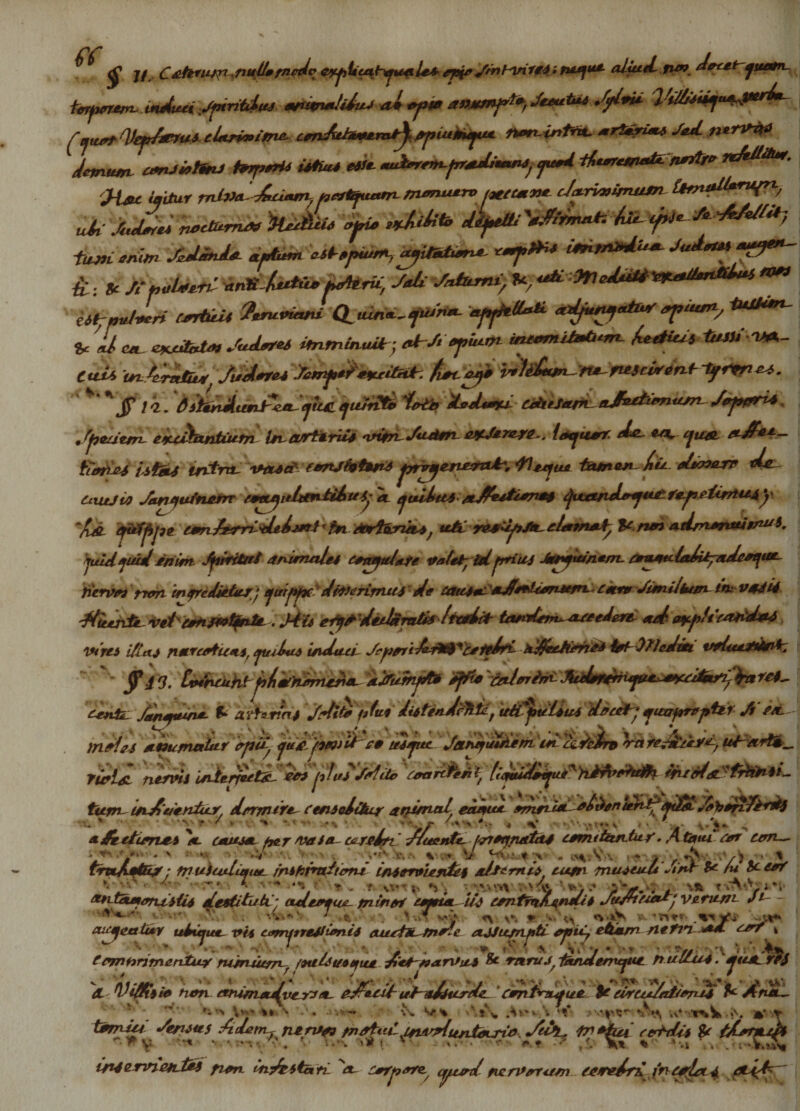 66
§ 11. Caeterum, nullo modo explicat quales opio sint vires; neque aliud non docet quam
torporem induci spiritibus animalibus ab opio assumpto, secutus Sylvii Villisiique verba
(quos Vepferus clarissime confutaverat) opiumque non intra arterias sed nervos
demum consistens torporis istius esse autorem praedicans, quod theoremate nostro refellitur.
Haec igitur missa faciam, postquam monuero peccasse clarissimum
ubi sudores nocturnos Hecticis opio exhibito depelli affirmat: hic ipse se refellit;
tussi enim sedanda aptum est opium, agitatione corporis immodica sudores augen-
ti: & si pulveri anti-hectico poterii, sali saturni, &, uti Medicis excellentibus mos
est, pulveri corticis Peruviani Quina-quina appellati adjungatur opium, tussim
& ab ea excitatos sudores imminuit; at si opium incomitatum hecticis tussi va-
cuis in- sudores semper excitat. hoc ego volebam ne nescirent tyrones.
§ 12. Ostendunt ea quae quinto loco deduxi causam affectionum soporis
speciem excitantium in arteriis vim suam exserere. loquor de ea quae affec-
tiones istas intra vasa consistens progenerat. Neque tamen hic dissero de
causis sanguinem coagulantibus, a quibus affectiones quandoque repetimus;
hae quippe conferri debent in arterias, uti res ipsa clamat, & nos admonuimus.
quidquid enim spiritus animales coagulare valet, id prius sanguinem coagulabit, adeoque
nervos non ingredietur; quippe disserimus de causa affectionum cum similium in vasis
fluente vel consistente. His ergo deliberatis licebit tandem accedere ad explicandas
vires illas narcoticas, quibus induci soporiferas cerebri affectiones tot Medici voluerunt.
§ 13. Evincunt phaenomena assumpto opio calorem sudoremque excitari, rares-
cente sanguine & arterias solito plus distendente, uti pulsus docet; quapropter si ea
moles assumatur opii, quae possit eo usque sanguinem in cerebro rarefacere, ut arte-
riola nervis interjecta eos plus solito coarctent, liquidoque nervorum transi-
tum influentur, dormire censebitur animal, eaque omnia obvenient quae soporiferas
affectiones a causa per vasa cerebri fluente prognatas comitantur. Atqui cor con-
trahetur; musculique inspirationi inservientes alternis, cum musculi sint & hi & cor
antagonistis destituti; adeoque minor copia iis contrahendis sufficiat; verum si
augeatur ubique vis compressionis aucta mole assumpti opii, etiam nervi ad cor
comprimentur nimium, pulsusque fiet parvus & rarus, tandemque nullus. quae res
a Villisio non animadversa effecit ut absurde contraque & circulationis & Ana-
tomiae sensus fidem, nervos motui involuntario, seu, motui cordis & thoracis
inservientes non infestari a corpore, quod nervorum cerebri incolas ait